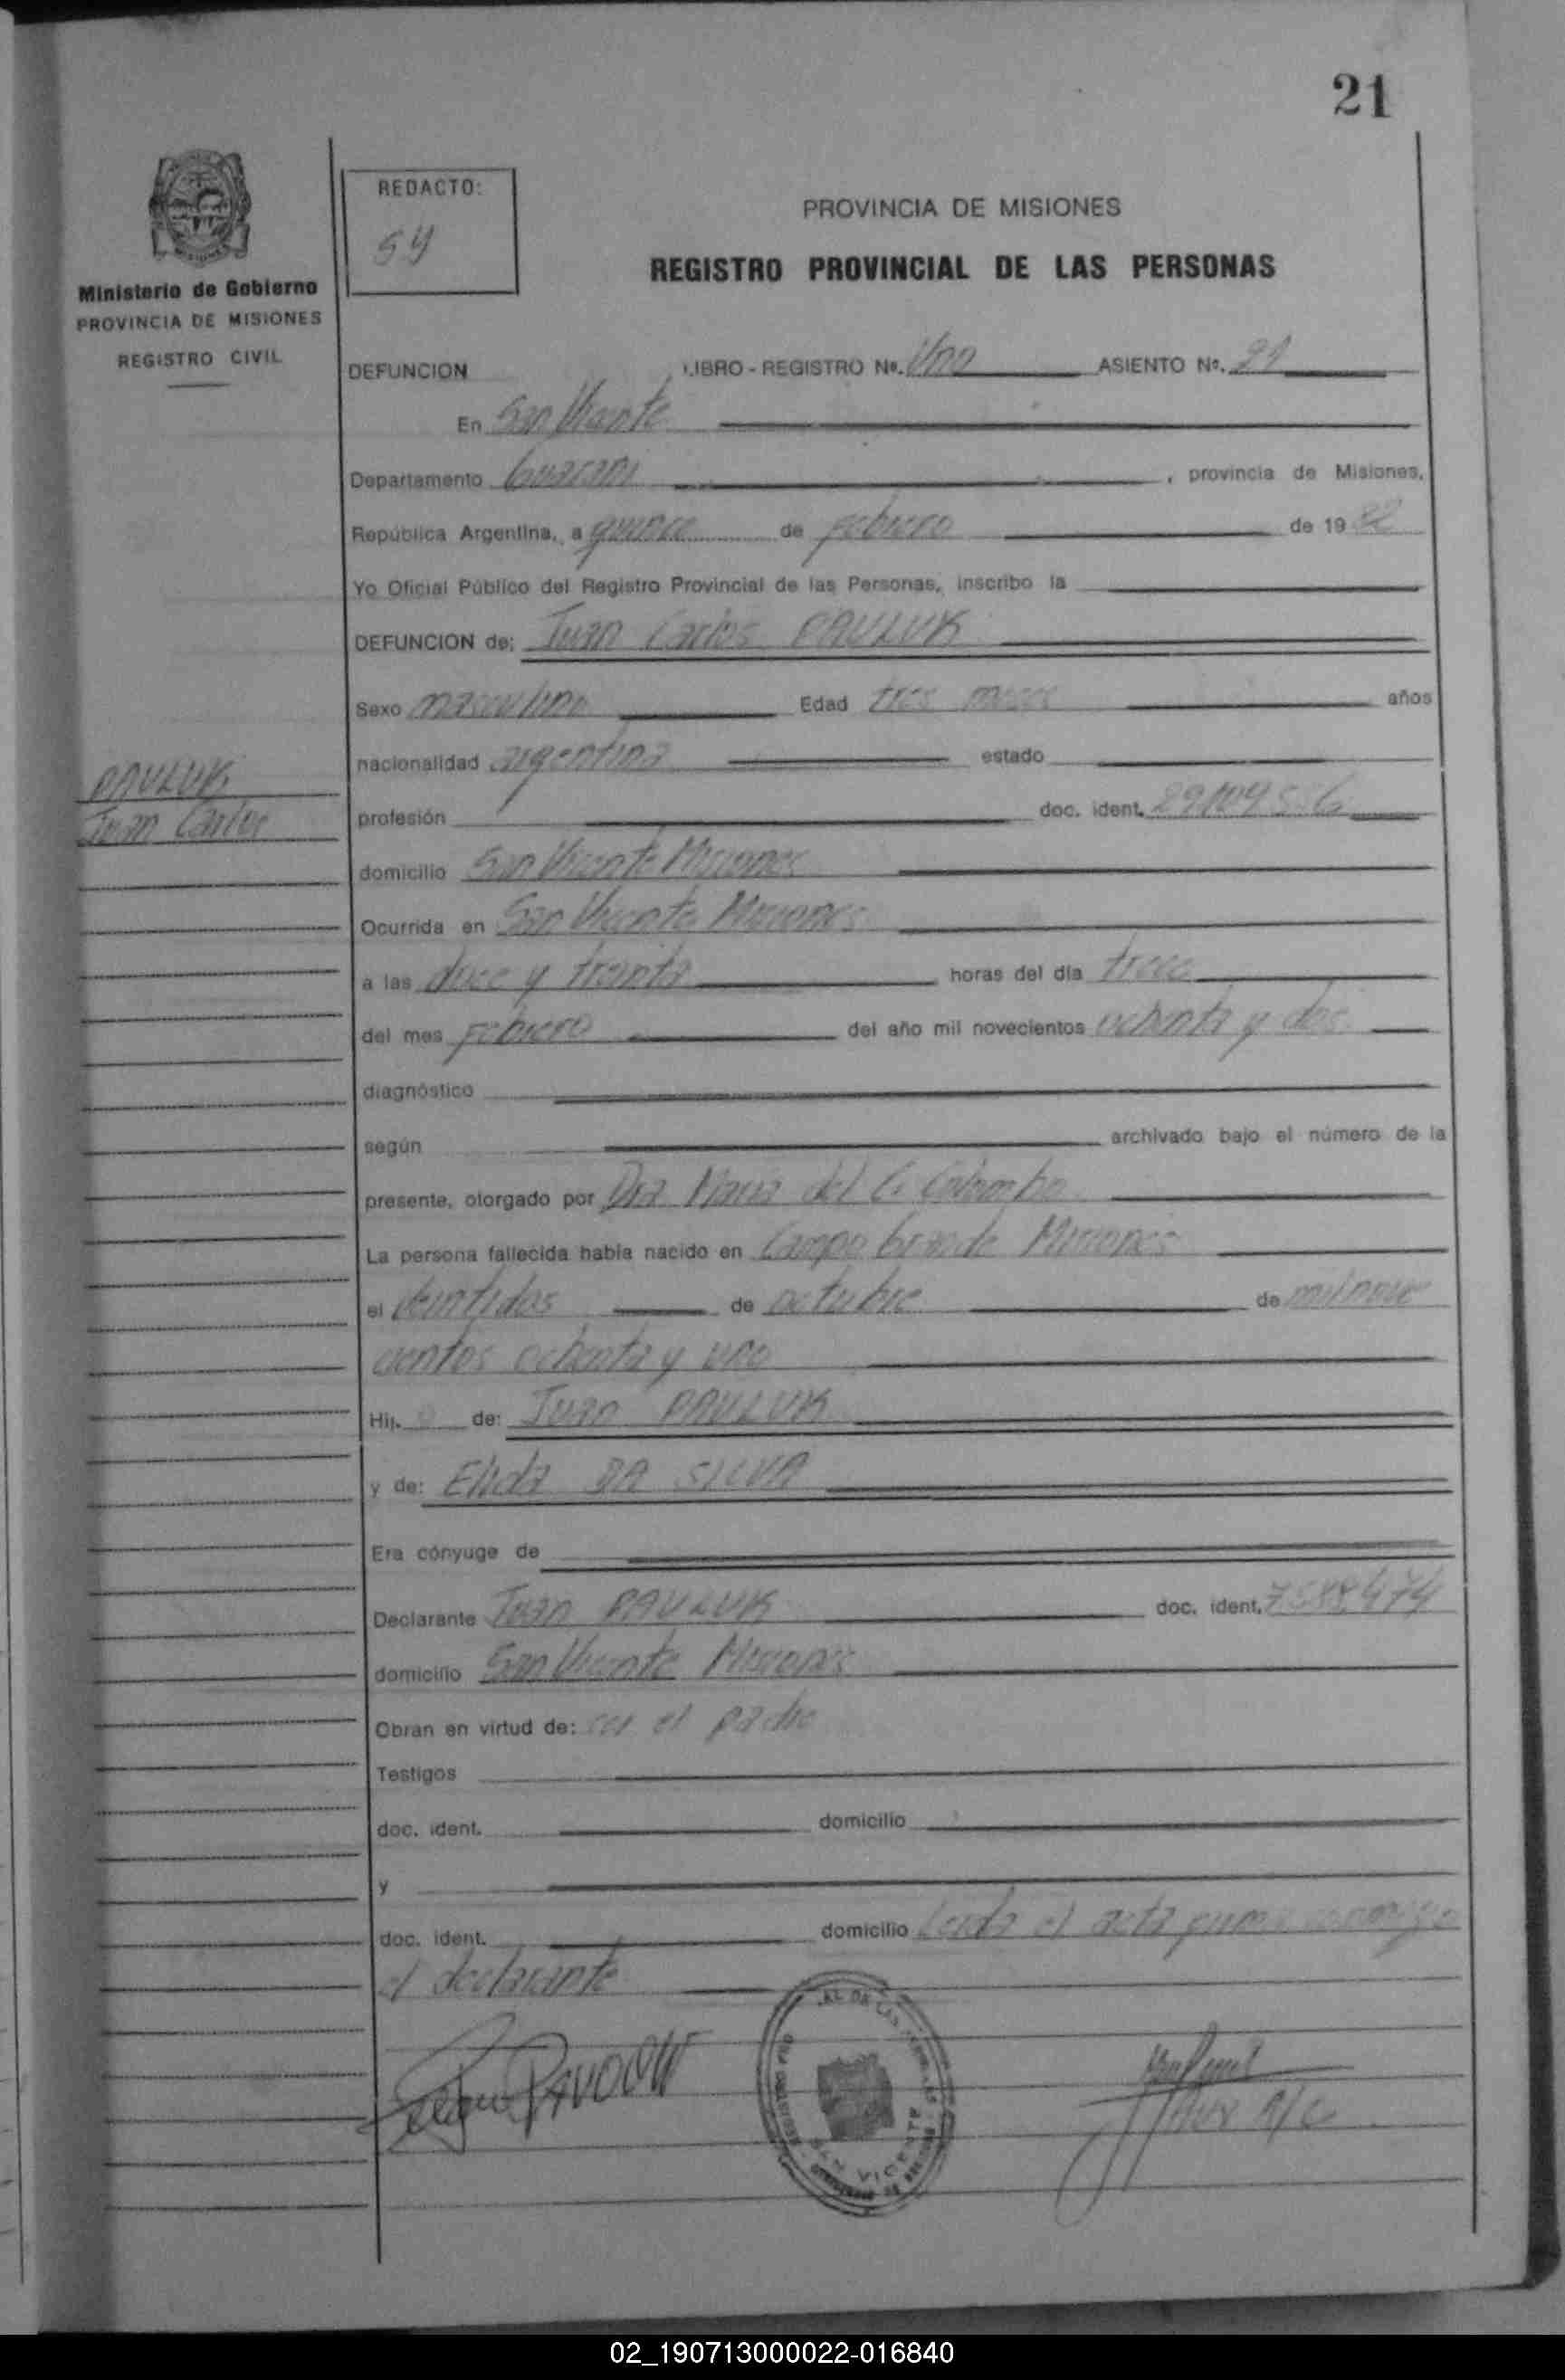 21
REDACTO:
54
Ministerio de Gobierno
PROVINCIA DE MISIONES
REGISTRO CIVIL
PROVINCIA DE MISIONES
REGISTRO PROVINCIAL DE LAS PERSONAS
DEFUNCION LIBRO - REGISTRO Nº. Uno ASIENTO Nº. 21
En San Vicente
Departamento Guaraní, provincia de Misiones,
República Argentina, a quince de Febrero de 19 82
Yo Oficial Público del Registro Provincial de las Personas, inscribo la
DEFUNCION de: Juan Carlos PAULUK
Sexo masculino Edad tres meses años
nacionalidad argentina estado
PAULUK
Juan Carlos
profesión doc. ident.
domicilio San Vicente Misiones
Ocurrida en San Vicente Misiones
a las doce y treinta horas del día trece
del mes Febrero del año mil novecientos ochenta y dos
diagnóstico
según archivado bajo el número de la
presente, otorgado por Dra Maria del C. Colombo
La persona fallecida había nacido en Campo Grande Misiones
el veintidos de octubre de mil nove
cientos ochenta y uno
Hij. o de: Juan PAULUK
y de: Elida DA SILVA
Era cónyuge de
Declarante Juan PAULUK doc. ident. 7588474
domicilio San Vicente Misiones
Obran en virtud de: ser el padre
Testigos
doc. ident. domicilio
y
doc. ident. domicilio Leida el acta firma conmigo
el declarante
SAN VICENTE
02_190713000022-016840